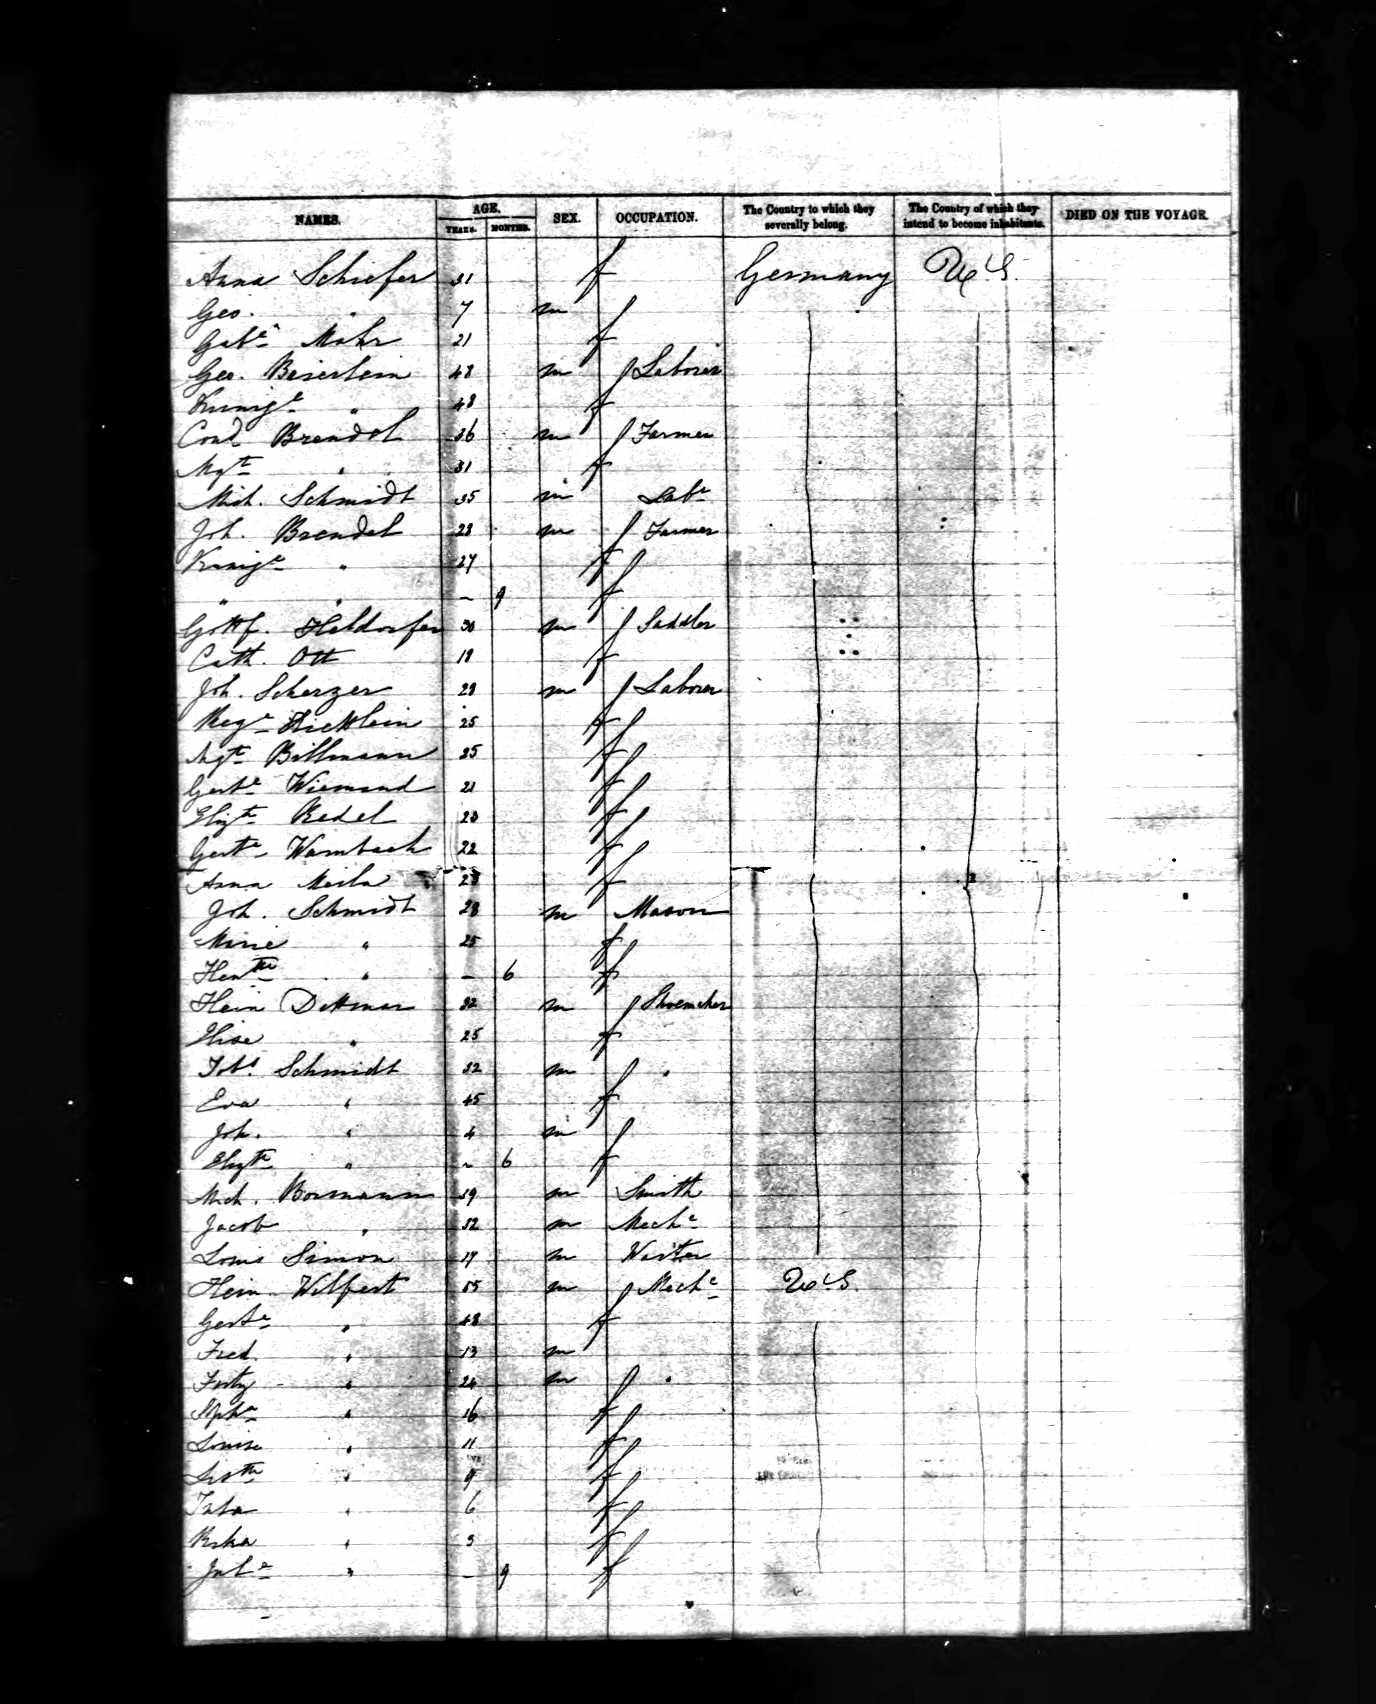 NAMES. AGE. YEARS. MONTHS. SEX. OCCUPATION. The Country to which they severally belong. The Country of which they intend to become inhabitants. DIED ON THE VOYAGE.
Anna Schiefer 31 f Germany U.S.
Geo. " 7 m
Gabe Mohr 21 f
Geo. Beierlein 48 m Laborer
Kunige " 48 f
Cond Brendel 36 m Farmer
Mgte " 31 f
Mich. Schmidt 35 m Labr
Joh. Brendel 28 m Farmer
Kunige " 27 f
" " – 9 f
Gottf. Heldorfer 30 m Saddler
Cath. Ott 19 f
Joh. Scherzer 29 m Laborer
25 f
Mgte Billmann 25 f
Gerte Wiemand 21 f
Elizte Redel 23 f
Gerte Wambach 22 f
Anna 23 f
Joh. Schmidt 28 m Mason
Mine " 25 f
Hentte " – 6 f
Hein Dettmar 32 m Shoemaker
Elise " 25 f
Tobs Schmidt 32 m "
Eva " 45 f
Joh. " 4 m
Elizte " – 6 f
Mich. Bormann 39 m Smith
Jacob " 32 m Mechc
Louis Simon 17 m Waiter
Hein. Wilfert 55 m Mechc U.S.
Gerte " 48 f
Fred. " 13 m
" 24 m "
Sopha " 16 f
Louise " 11 f
" 9 f
" 6 f
" 3 f
Jule " – 9 f